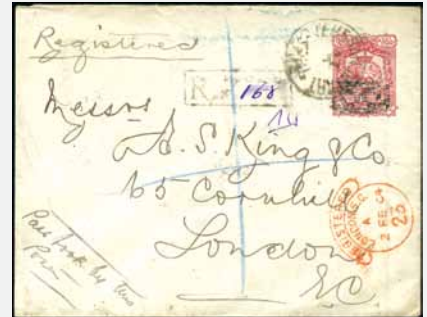 Registered
R 168
14
Messrs
A. S. King & Co
65 Cornhill
London
E.C
Pass book by this
Post
REGISTERED
LONDON
A
2 FE 04
23